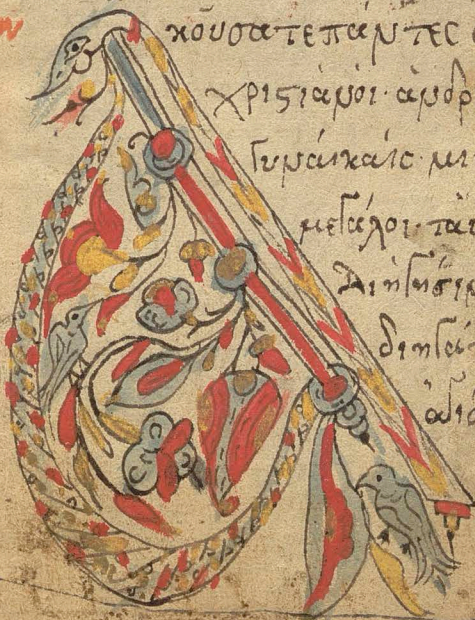 κούσατε πάντες
χριϛιάνοι· άνδρ
Γυναίκαις· μι
μεγάλοι· ται
Διηγησιν
διηγεσ